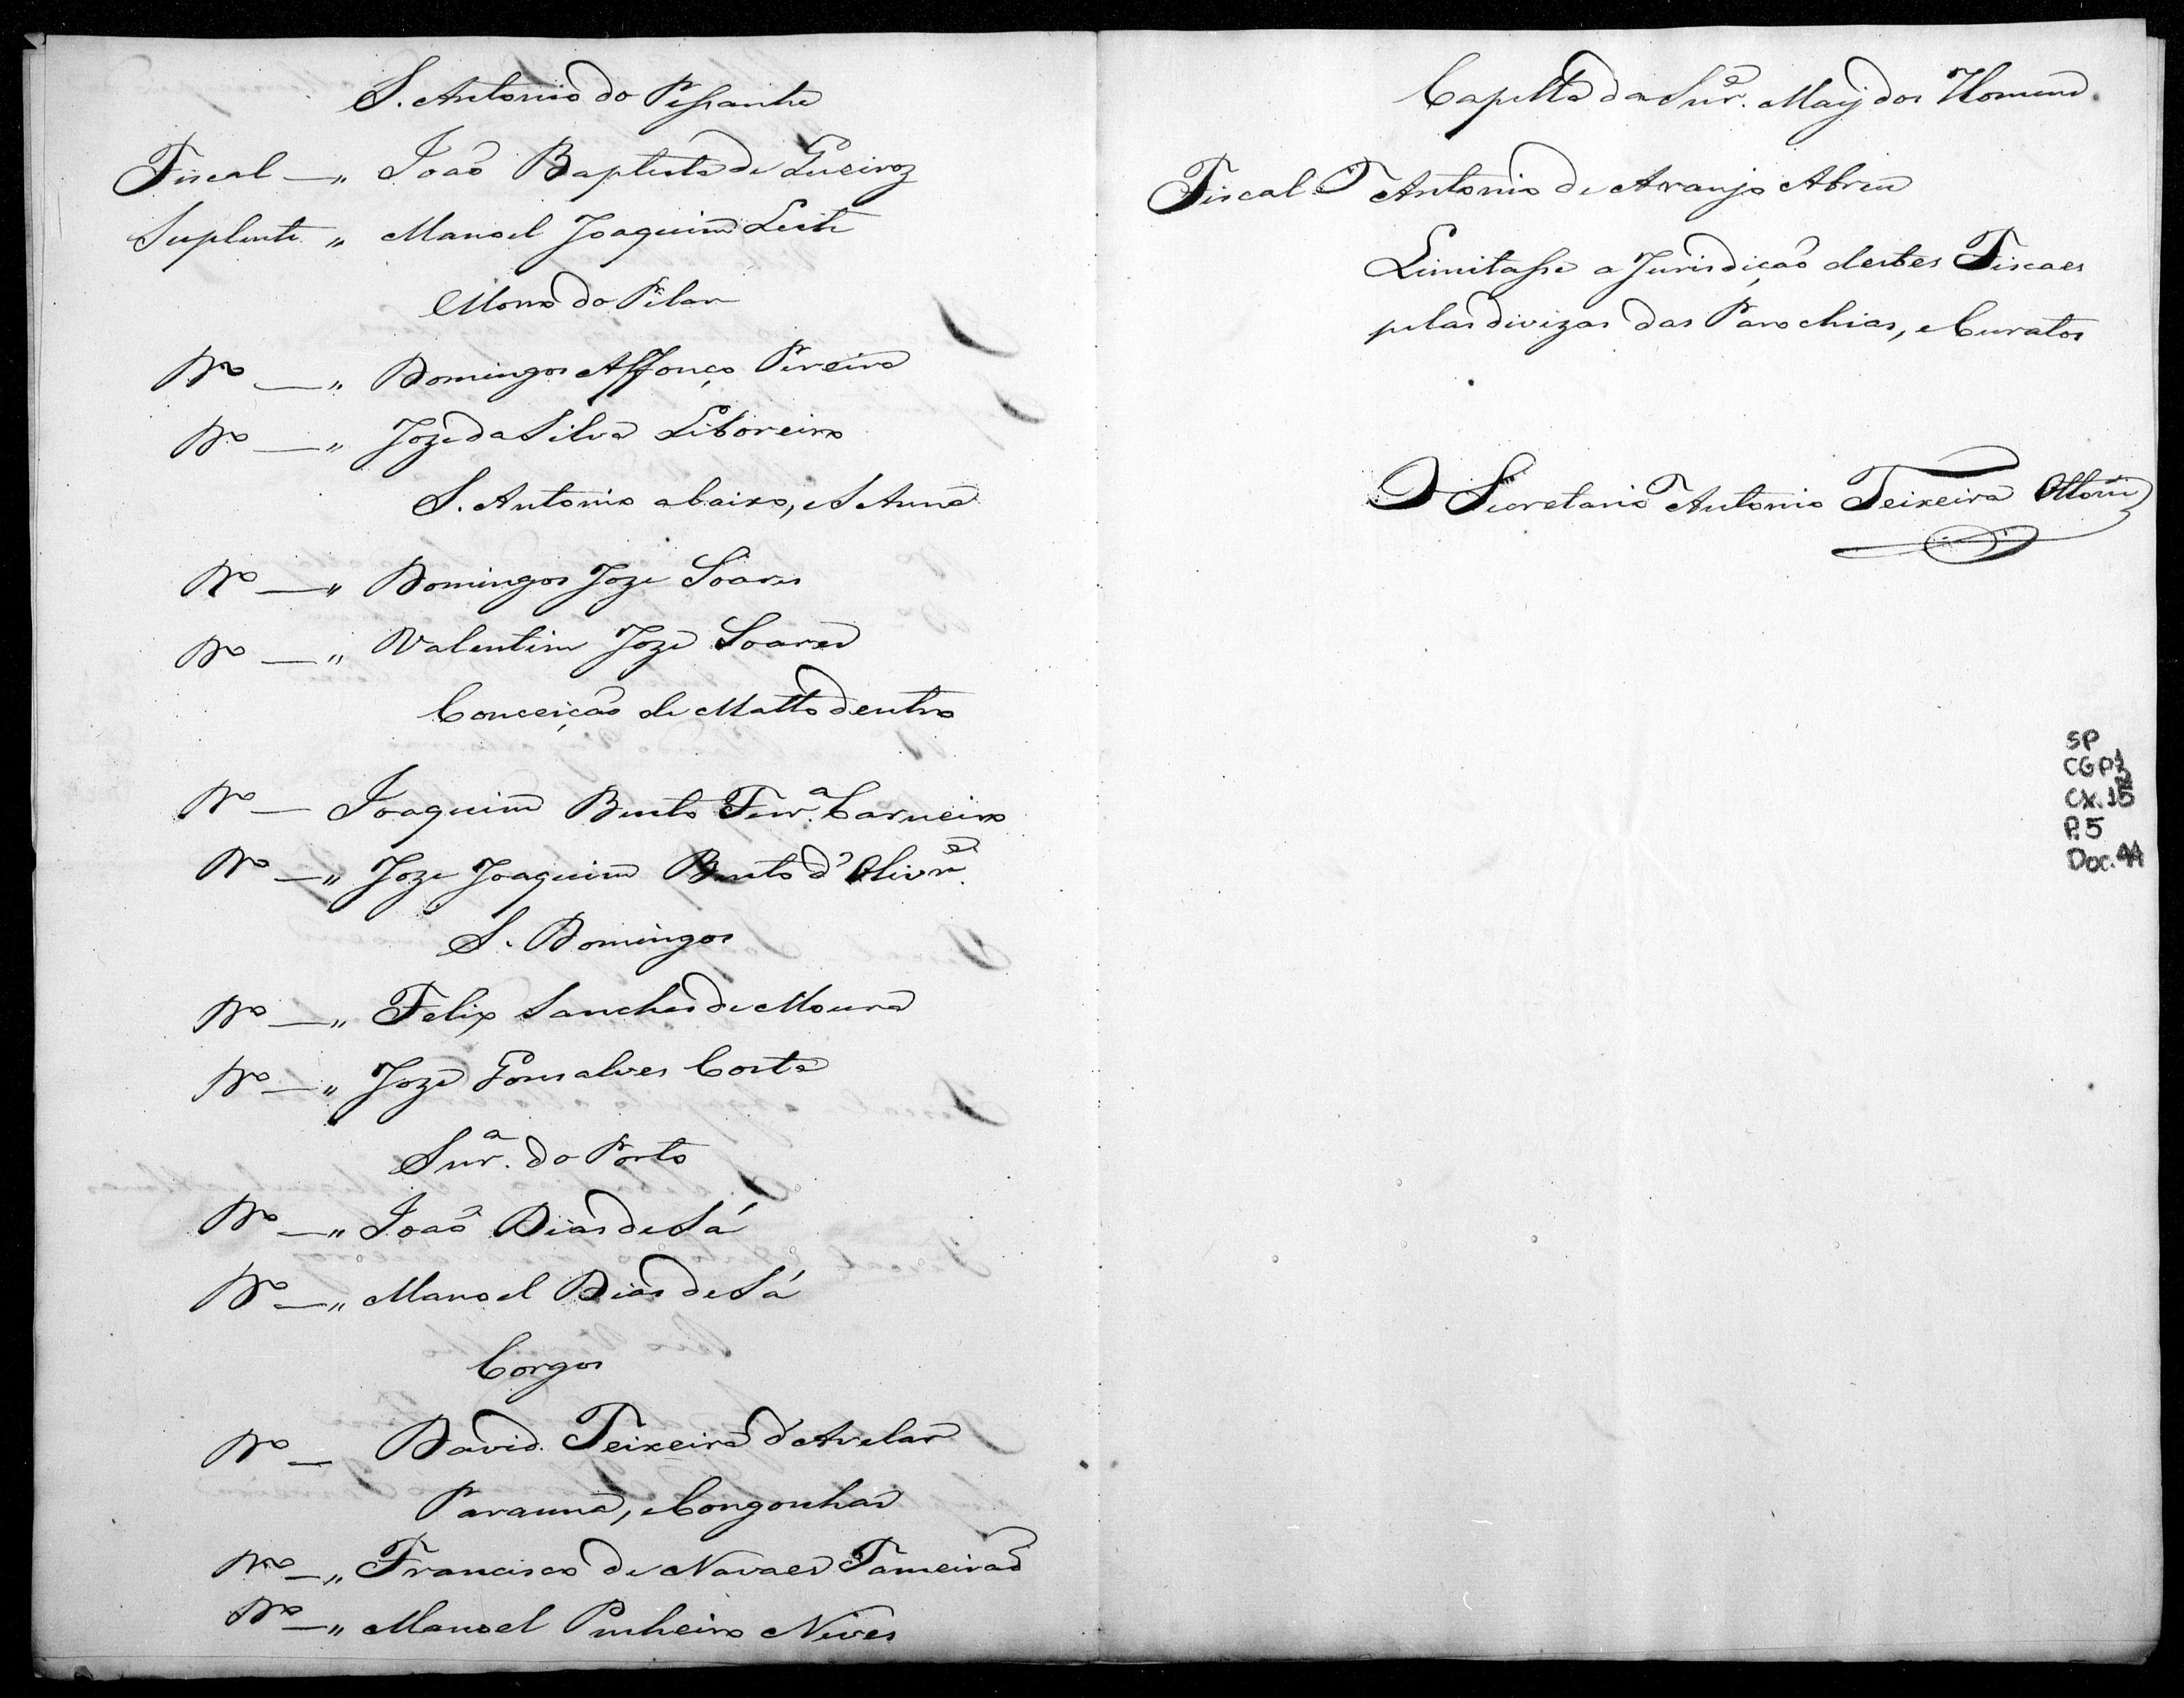 S. Antonio do Pessanha
Fiscal — „ João Baptista de Queiroz
Suplente „ Manoel Joaquim Leite
Morro do Pilar
Dº — „ Domingos Affonço Pereira
Dº — „ Joze da Silva Liboreiro
S. Antonio abaixo, e S Anna
Dº — „ Domingos Joze Soares
Dº — „ Valentim Joze Soares
Conceição do Matto dentro
Dº — Joaquim Bento Ferrª. Carneiro
Dº — „ Joze Joaquim Bento d'Olivrª.
S. Domingos
Dº — „ Felix Sanches de Moura
Dº — „ Joze Gonsalves Costa
Snrª. do Porto
Dº — „ João Dias de Sá
Dº — „ Manoel Dias de Sá
Corgos
Dº — David Teixeira d'Avelar
Paraúna, e Congonhas
Dº — „ Francisco de Navaes Tameirão
Dº — „ Manoel Pinheiro Neves
Capella da Snrª. May dos Homens.
Fiscal Antonio de Araujo Abreu
Limitasse a Jurisdição destes Fiscaes
pelas divizas das Parochias, e Curatos
O Secretario Antonio Teixeira Ottoni
SP
CGP1
Cx. 15
P. 5
Doc. 44